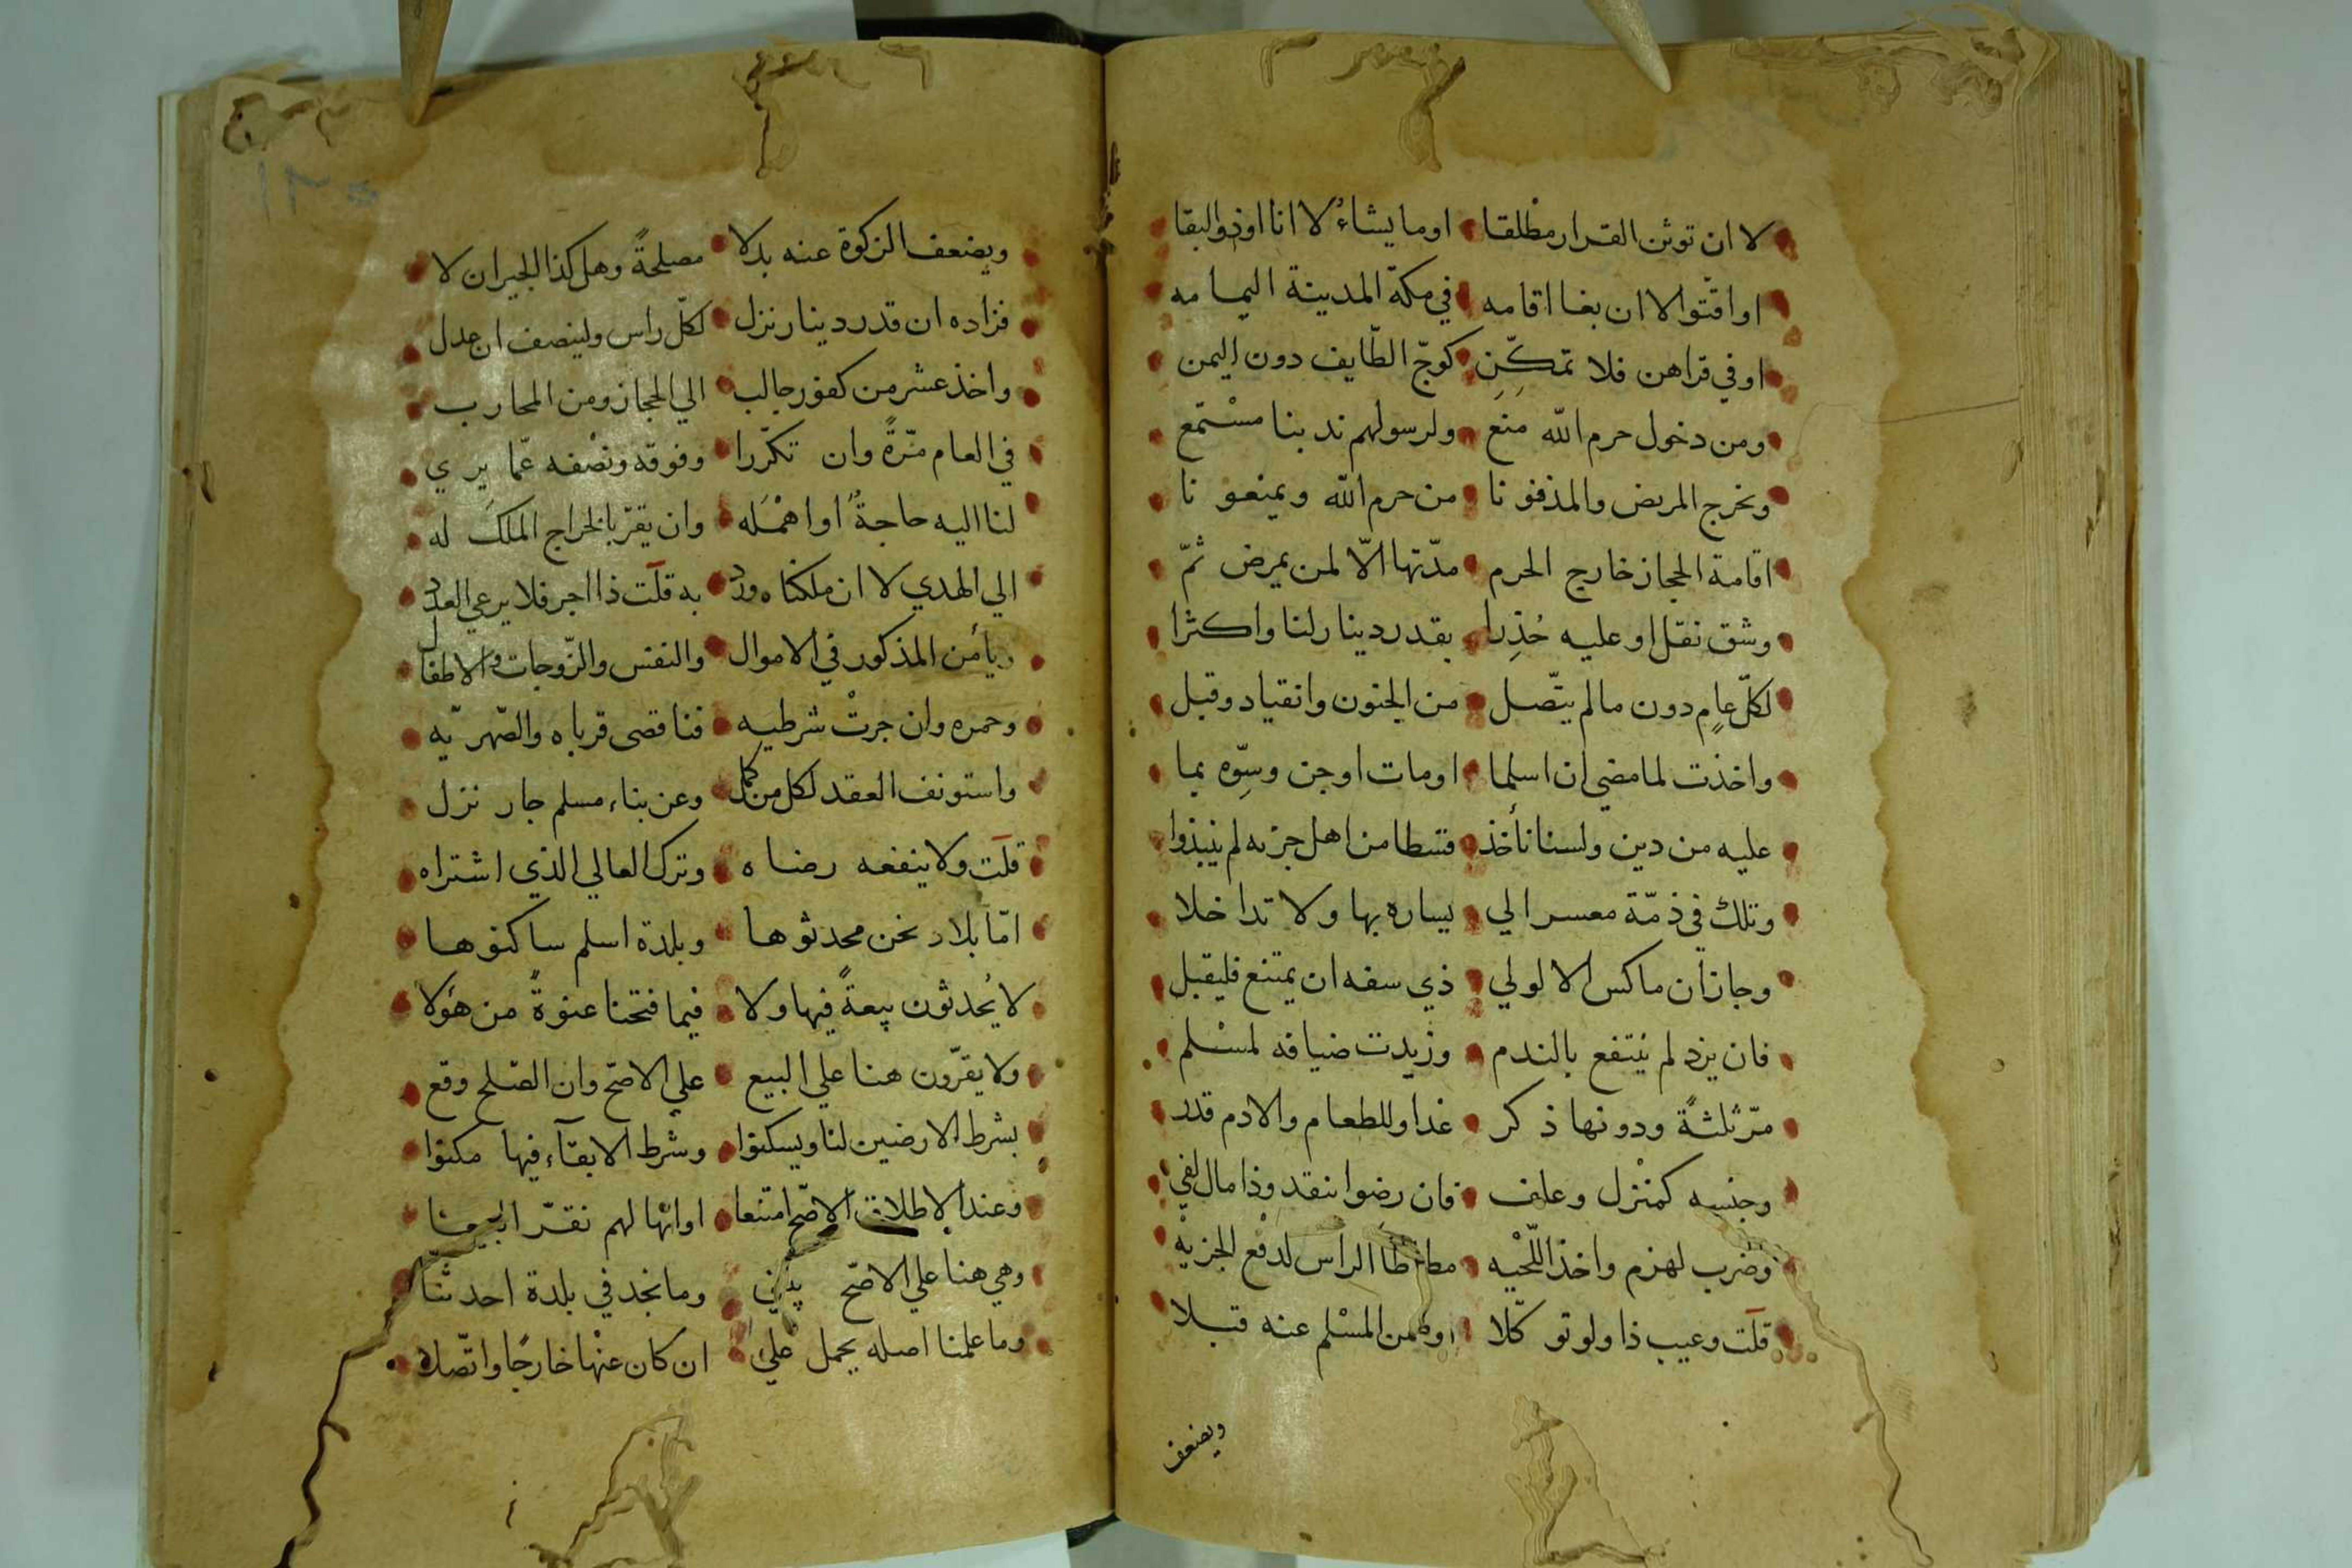 لا ان توثن القرار مطلقا اوما يشاءُ لا انا اوذوا لبقا
او اقّتوا لا ان بغا اقامه في مكة المدينة اليمامه
او في قراهن فلا تمكّنِ كوجّ الطّايف دون اليمن
ومن دخول حرم الله مَنِع ولرسولهم ندبنا مسْتمع
ونخرج المريض والمدفونا من حرم الله ويمنعونا
اقامة الحجاز خارج الحرم مدّتها الّا لمن يمرض ثمّ
وشق نقل او عليه حُذِرا بقدر دينار لنا واكثرا
لكلّ عامٍ دون ما لم يتّصل من الجنون وانقياد وقبل
واخذت لما مضي ان اسلما او مات او جن وسِوّه بما
عليه من دين ولسنا نأخذ قسطا من اهل جزيه لم ينبذوا
وتلك في ذمّة معسر الي يساره بها ولا تداخلا
وجاز أن ماكس لا لولي ذي سفه ان يمتنع فليقبل
فان يزد لم يُنتفع بالندم وزيدت ضيافه لمسْلم
مرّ ثلثةً ودونها ذكر غدا وللطعام والادم قدر
وجنسِه كمنْزل وعلف فان رضوا بنقد وذا مال لفي
وضرب لهزم واخذ اللّحْيه مطاطا الراس لدفع الجزيه
قلت وعيب ذا ولو توكّلا او ضمن المسْلم عنه قبلا
ويضعف
ويضعف الزكوة عنه بدلا مصلحةً وهل كذا الجبران لا
فزاده ان قدر دينار نزل لكلّ راس ولينصف ان عدل
واخذ عشر من كفور جالب الي الحجاز ومن المحارب
في العام مرّةً وان تكرّرا وفوقه ونصْفه عمّا يري
لنا اليه حاجةً او اهمْله وان يقرّ بالخراج الملك له
الي الهدي لا ان ملكناه ورد به قلت ذا اجر فلا يرعي العدد
ويأمن المذكور في الاموال والنفس والزّوجات والاطفال
وحمره وان جرتْ شرطيه فنا قصي قرباه والصّهريّه
واستونف العقد لكل من كمل وعن بناء مسلم جار نزل
قلت ولا ينفعه رضاه وترك العالي الذي اشتراه
امّا بلاد نحن محدثوها وبلدة اسلم ساكنوها
لا يُحدثون بيعةً فيها ولا فيما فتحنا عنوةً من هؤلا
ولا يقرّون هنا علي البيع علي الاصحّ وان الصّلح وقع
بشرط الارضين لنا ويسكنوا وشرط الابقآء فيها مكنوا
وعند الاطلاق الاصحّ امتنعا او انّها لهم نقرّ البيعا
وهي هنا علي الاصحّ وما نجد في بلدة احدثنا
وما علمنا اصله يحمل علي ان كان عنْها خارجًا واتّصلا